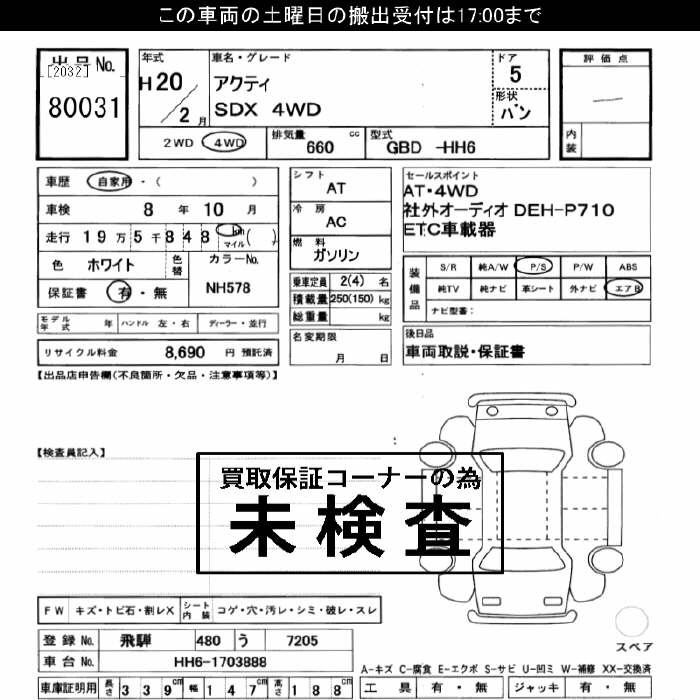 この車両の土曜日の搬出受付は17:00まで
出品No.
[2032]
80031
年式
H20
／2月
車名・グレード
アクティ
SDX 4WD
ドア
5
形状
バン
評価点
内装
2WD 4WD
排気量
660 cc
型式
GBD -HH6
車歴 自家用・( )
車検 8年10月
走行 19万5千848 km マイル ( )
色 ホワイト
色替
カラーNo.
NH578
保証書 有・無
シフト
AT
冷房
AC
燃料
ガソリン
乗車定員 2(4) 名
積載量 250(150) kg
総重量 kg
名変期限
月 日
セールスポイント
AT・4WD
社外オーディオ DEH-P710
ETC車載器
装備品
S/R 純A/W P/S P/W ABS
純TV 純ナビ 革シート 外ナビ エアB
ナビ型番:
後日品
車両取説・保証書
モデル年式 年 ハンドル 左・右 ディーラー・並行
リサイクル料金 8,690 円 預託済
【出品店申告欄(不良箇所・欠品・注意事項等)】
【検査員記入】
買取保証コーナーの為
未検査
FW キズ・トビ石・割レX シート内装 コゲ・穴・汚レ・シミ・破レ・スレ
登録No. 飛騨 480 う 7205
車台No. HH6-1703888
車庫証明用 長さ 339cm 幅 147cm 高さ 188cm
スペア
A-キズ C-腐食 E-エクボ S-サビ U-凹ミ W-補修 XX-交換済
工具 有・無 ジャッキ 有・無